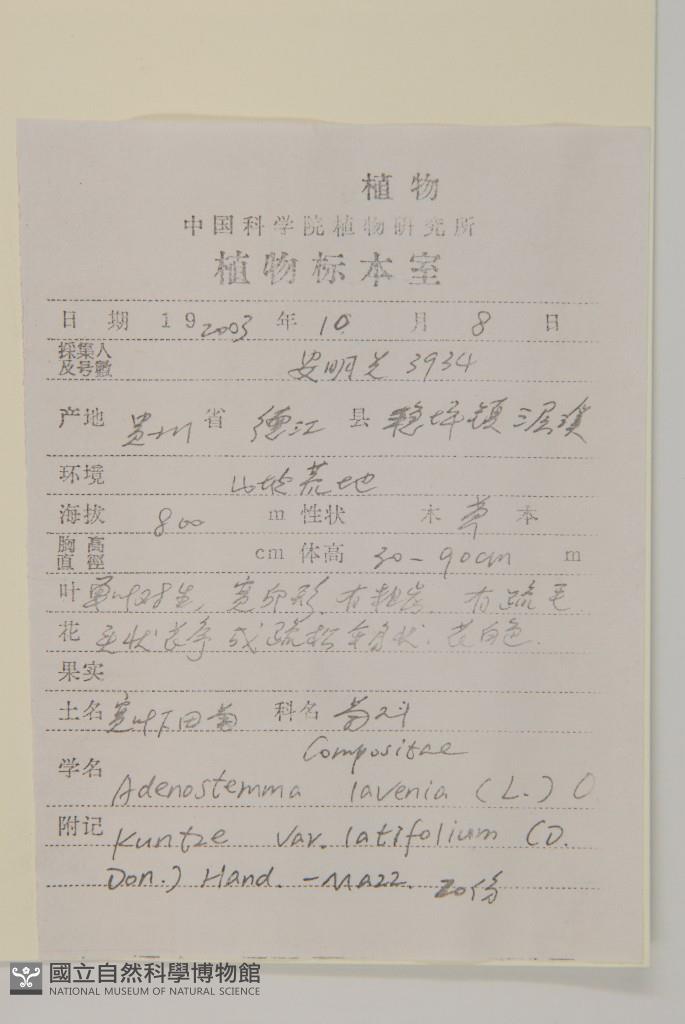 植物
中国科学院植物研究所
植物标本室
日 期 19 2003 年 10 月 8 日
採集人及号數 安明先 3934
产地 贵州 省 德江 县 稳坪镇三层溪
环境 山坡荒地
海拔 800 m 性状 木 草 本
胸高直徑 cm 体高 30-90cm m
叶 单叶对生, 宽卵形, 有粗齿, 有疏毛
花 头状花序 成疏松伞房状. 花白色.
果实
土名 宽叶下田菊 科名 菊科
Compositae
学名 Adenostemma lavenia (L.) O
附记 Kuntze var. latifolium (D.
Don.) Hand.-Mazz. 20份
國立自然科學博物館
NATIONAL MUSEUM OF NATURAL SCIENCE